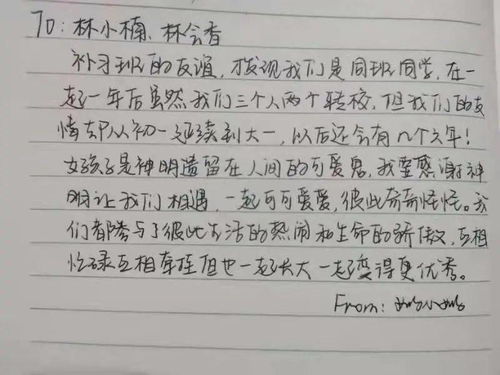 TO：林小楠、林会香
补习班的友谊，才发现我们是同班同学，在一
起一年后虽然我们三个人两个转校，但我们的友
情却从初一延续到大一，以后还会有几个六年！
女孩子是神明遗留在人间的可爱鬼，我要感谢神
明让我们相遇，一起可可爱爱，彼此奇奇怪怪。我
们都参与了彼此生活的热闹和生命的骄傲，互相
忙碌互相牵挂但也一起长大一起变得更优秀。
From：